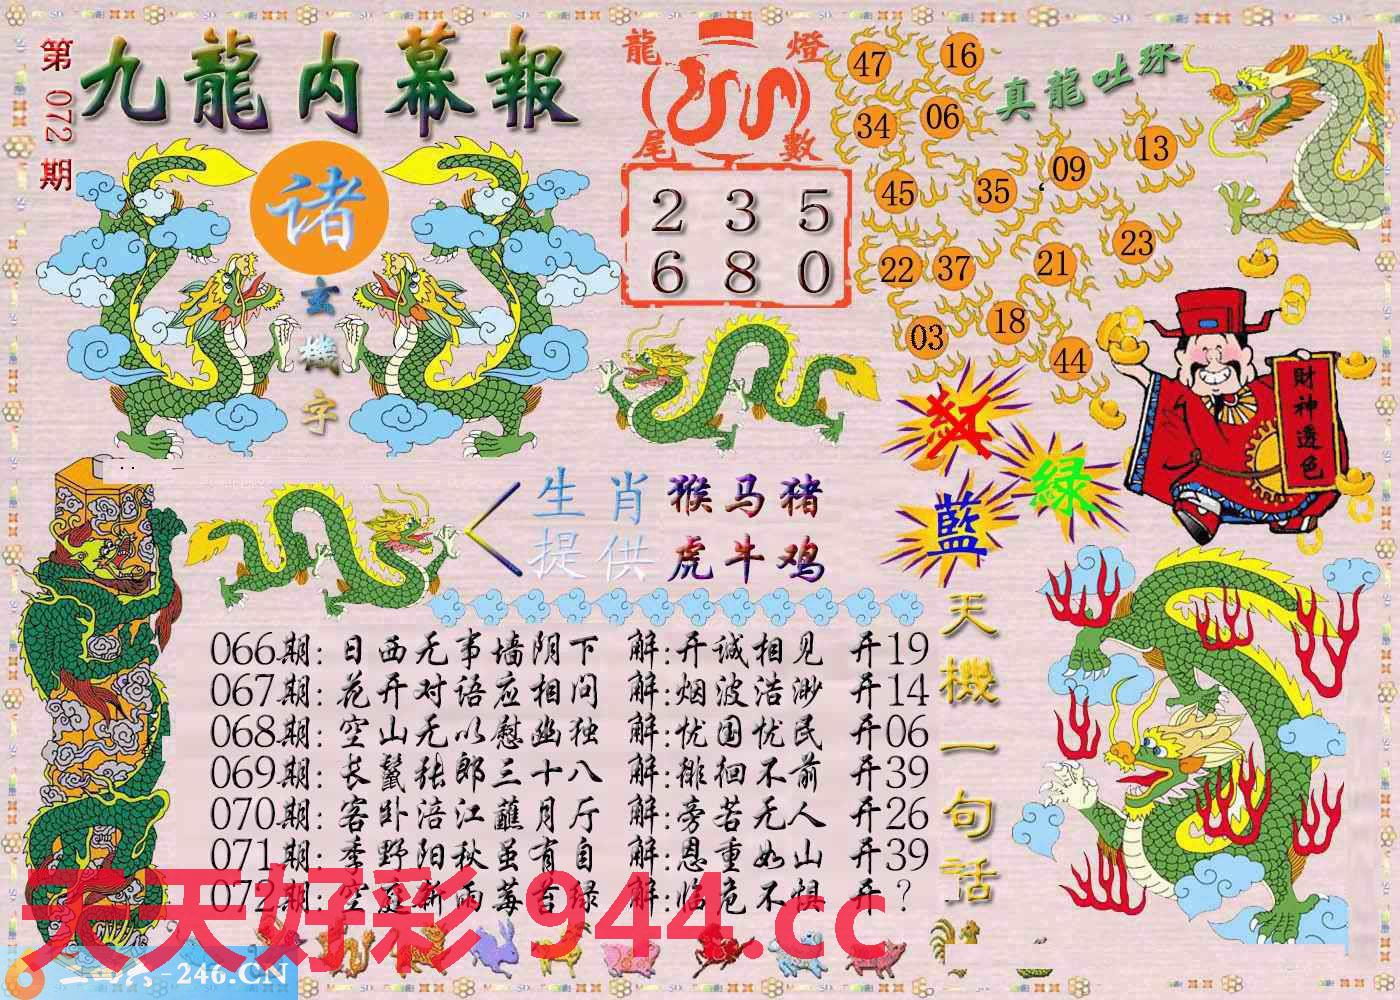 第072期
九龍内幕報
诸
玄機字
龍燈
尾數
2 3 5
6 8 0
真龍吐珠
47 16
34 06
45 35 09 13
22 37 21 23
03 18 44
財神透色
红
绿
藍
生肖提供
猴马猪
虎牛鸡
066期:日西无事墙阴下 解:开诚相见 开19
067期:花开对语应相问 解:烟波浩渺 开14
068期:空山无以慰幽独 解:忧国忧民 开06
069期:长鬣张郎三十八 解:徘徊不前 开39
070期:客卧涪江蘸月厅 解:旁若无人 开26
071期:季野阳秋虽有自 解:恩重如山 开39
072期:空庭新雨莓苔绿 解:临危不惧 开?
天機一句话
天天好彩 944.cc
二四六-246.CN